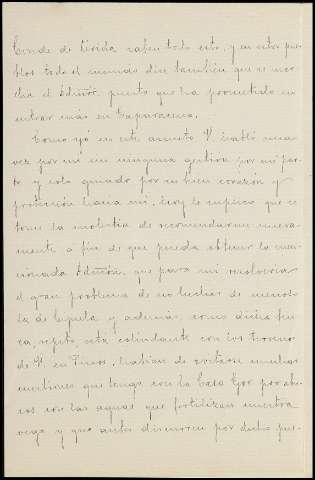 Conde de Lérida saben todo esto, y en estos pue-
blos todo el mundo dice también que se mar-
cha el Admór. puesto que ha prometido no
entrar más en
Como yó en este asunto V. habló una
vez por mi sin ninguna gestion por mi par-
te y solo guiado por su buen corazón y
protección hacia mi, hoy le suplico que se
tome la molestia de recomendarme nueva-
mente á fin de que pueda obtener la men-
cionada Admón. que para mi resolveria
el gran problema de no luchar de
la de y además, como dicha fin-
ca, repito, está colindante con los terrenos
de V. en habian de evitarse muchas
cuestiones que tengo con la Casa por abu-
sos con las aguas que fertilizan nuestra
vega y que antes discurren por dicho pue-